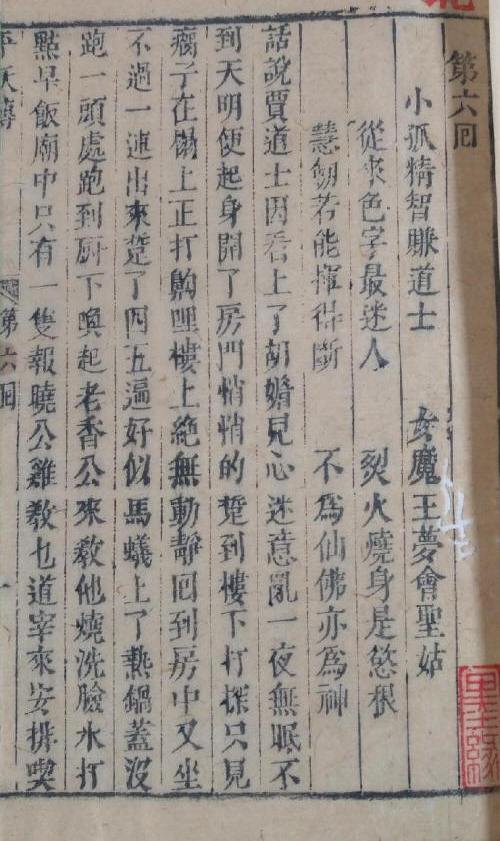 第六回
小狐精智賺道士　女魔王夢會聖姑
從來色字最迷人　烈火燒身是慾根
慧劒若能揮得斷　不為仙佛亦為神
話說賈道士因看上了胡媚兒心迷意亂一夜無眠不
到天明便起身開了房門悄悄的踅到樓下打探只見
瘸子在櫈上正打齁哩樓上絕無動靜回到房中又坐
不過一連出來踅了四五遍好似馬蟻上了熱鍋蓋沒
跑一頭處跑到厨下喚起老香公來教他燒洗臉水打
點早飯廟中只有一隻報曉公雞教乜道宰來安排喫
第六回